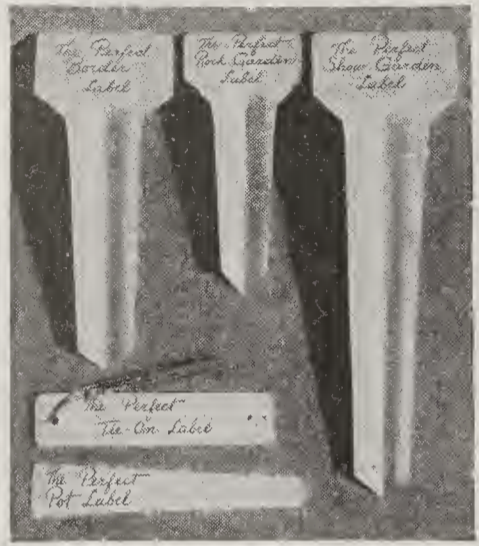 The Perfect
Border
Label
The "Perfect"
Rock Garden
Label
The "Perfect"
Show Garden
Label
The "Perfect"
Tie-On Label
The "Perfect"
Pot Label